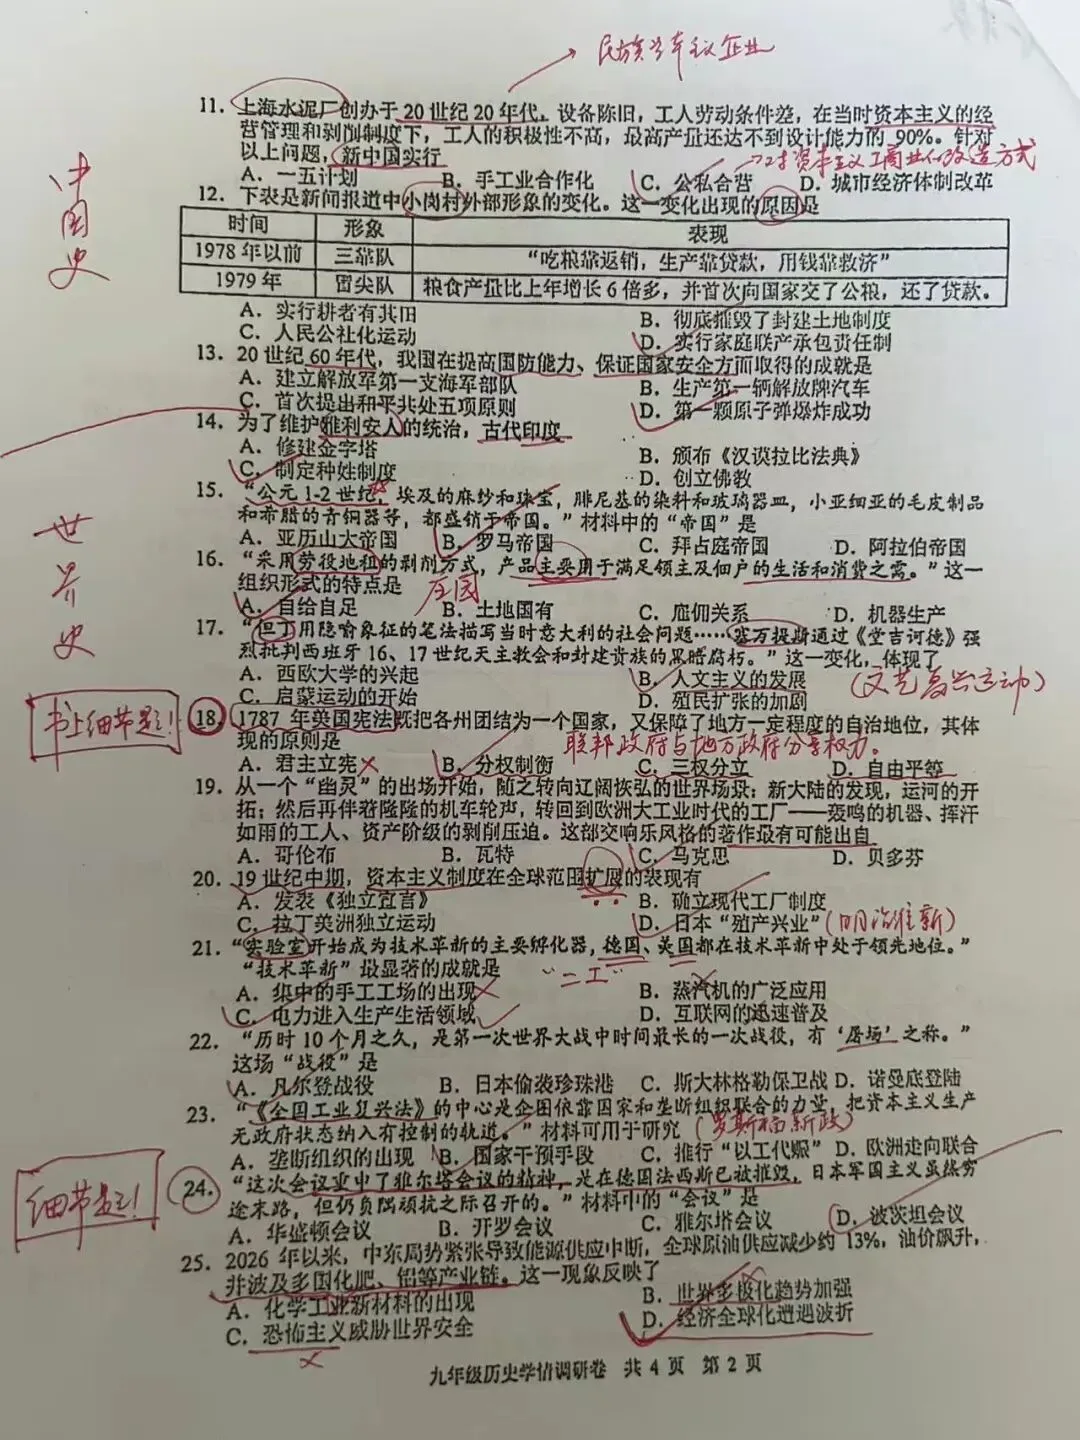 民族资本主义企业
11. 上海水泥厂创办于20世纪20年代，设备陈旧，工人劳动条件差，在当时资本主义的经
营管理和剥削制度下，工人的积极性不高，最高产量还达不到设计能力的90%。针对
以上问题，新中国实行
对资本主义工商业的改造方式
A. 一五计划 B. 手工业合作化 C. 公私合营 D. 城市经济体制改革
中国史
12. 下表是新闻报道中小岗村外部形象的变化。这一变化出现的原因是
时间 形象 表现
1978年以前 三靠队 “吃粮靠返销，生产靠贷款，用钱靠救济”
1979年 冒尖队 粮食产量比上年增长6倍多，并首次向国家交了公粮，还了贷款。
A. 实行耕者有其田 B. 彻底摧毁了封建土地制度
C. 人民公社化运动 D. 实行家庭联产承包责任制
13. 20世纪60年代，我国在提高国防能力、保证国家安全方面取得的成就是
A. 建立解放军第一支海军部队 B. 生产第一辆解放牌汽车
C. 首次提出和平共处五项原则 D. 第一颗原子弹爆炸成功
14. 为了维护雅利安人的统治，古代印度
A. 修建金字塔 B. 颁布《汉谟拉比法典》
C. 制定种姓制度 D. 创立佛教
世界史
15. “公元1-2世纪，埃及的麻纱和珠宝，腓尼基的染料和玻璃器皿，小亚细亚的毛皮制品
和希腊的青铜器等，都盛销于帝国。”材料中的“帝国”是
A. 亚历山大帝国 B. 罗马帝国 C. 拜占庭帝国 D. 阿拉伯帝国
16. “采用劳役地租的剥削方式，产品主要用于满足领主及佃户的生活和消费之需。”这一
组织形式的特点是
庄园
A. 自给自足 B. 土地国有 C. 雇佣关系 D. 机器生产
17. “但丁用隐喻象征的笔法描写当时意大利的社会问题……塞万提斯通过《堂吉诃德》强
烈批判西班牙16、17世纪天主教会和封建贵族的黑暗腐朽。”这一变化，体现了
A. 西欧大学的兴起 B. 人文主义的发展
(文艺复兴运动)
C. 启蒙运动的开始 D. 殖民扩张的加剧
书上细节题！
18. 1787年美国宪法既把各州团结为一个国家，又保障了地方一定程度的自治地位，其体
现的原则是
联邦政府与地方政府分享权力。
A. 君主立宪 B. 分权制衡 C. 三权分立 D. 自由平等
19. 从一个“幽灵”的出场开始，随之转向辽阔恢弘的世界场景：新大陆的发现，运河的开
拓；然后再伴着隆隆的机车轮声，转回到欧洲大工业时代的工厂——轰鸣的机器、挥汗
如雨的工人、资产阶级的剥削压迫。这部交响乐风格的著作最有可能出自
A. 哥伦布 B. 瓦特 C. 马克思 D. 贝多芬
20. 19世纪中期，资本主义制度在全球范围扩展的表现有
A. 发表《独立宣言》 B. 确立现代工厂制度
C. 拉丁美洲独立运动 D. 日本“殖产兴业”
(明治维新)
21. “实验室开始成为技术革新的主要孵化器，德国、美国都在技术革新中处于领先地位。”
“技术革新”最显著的成就是
“二工”
A. 集中的手工工场的出现 B. 蒸汽机的广泛应用
C. 电力进入生产生活领域 D. 互联网的迅速普及
22. “历时10个月之久，是第一次世界大战中时间最长的一次战役，有‘屠场’之称。”
这场“战役”是
A. 凡尔登战役 B. 日本偷袭珍珠港 C. 斯大林格勒保卫战 D. 诺曼底登陆
23. “《全国工业复兴法》的中心是企图依靠国家和垄断组织联合的力量，把资本主义生产
无政府状态纳入有控制的轨道。”材料可用于研究
(罗斯福新政)
A. 垄断组织的出现 B. 国家干预手段 C. 推行“以工代赈” D. 欧洲走向联合
细节题！
24. “这次会议重申了雅尔塔会议的精神，是在德国法西斯已被摧毁，日本军国主义虽然穷
途末路，但仍负隅顽抗之际召开的。”材料中的“会议”是
A. 华盛顿会议 B. 开罗会议 C. 雅尔塔会议 D. 波茨坦会议
25. 2026年以来，中东局势紧张导致能源供应中断，全球原油供应减少约13%，油价飙升，
并波及多国化肥、铝等产业链。这一现象反映了
A. 化学工业新材料的出现 B. 世界多极化趋势加强
C. 恐怖主义威胁世界安全 D. 经济全球化遭遇波折
九年级历史学情调研卷 共4页 第2页